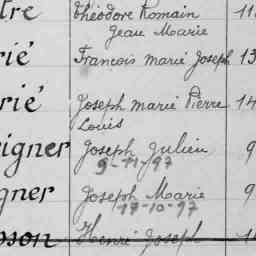 tre Théodore Romain 11
Jean Marie
rié François marie Joseph 13
rié Joseph Marie Pierre 14
Louis
igner Joseph Julien 9
9-11-97
gner Joseph Marie 9
17-10-97
son Henri Joseph